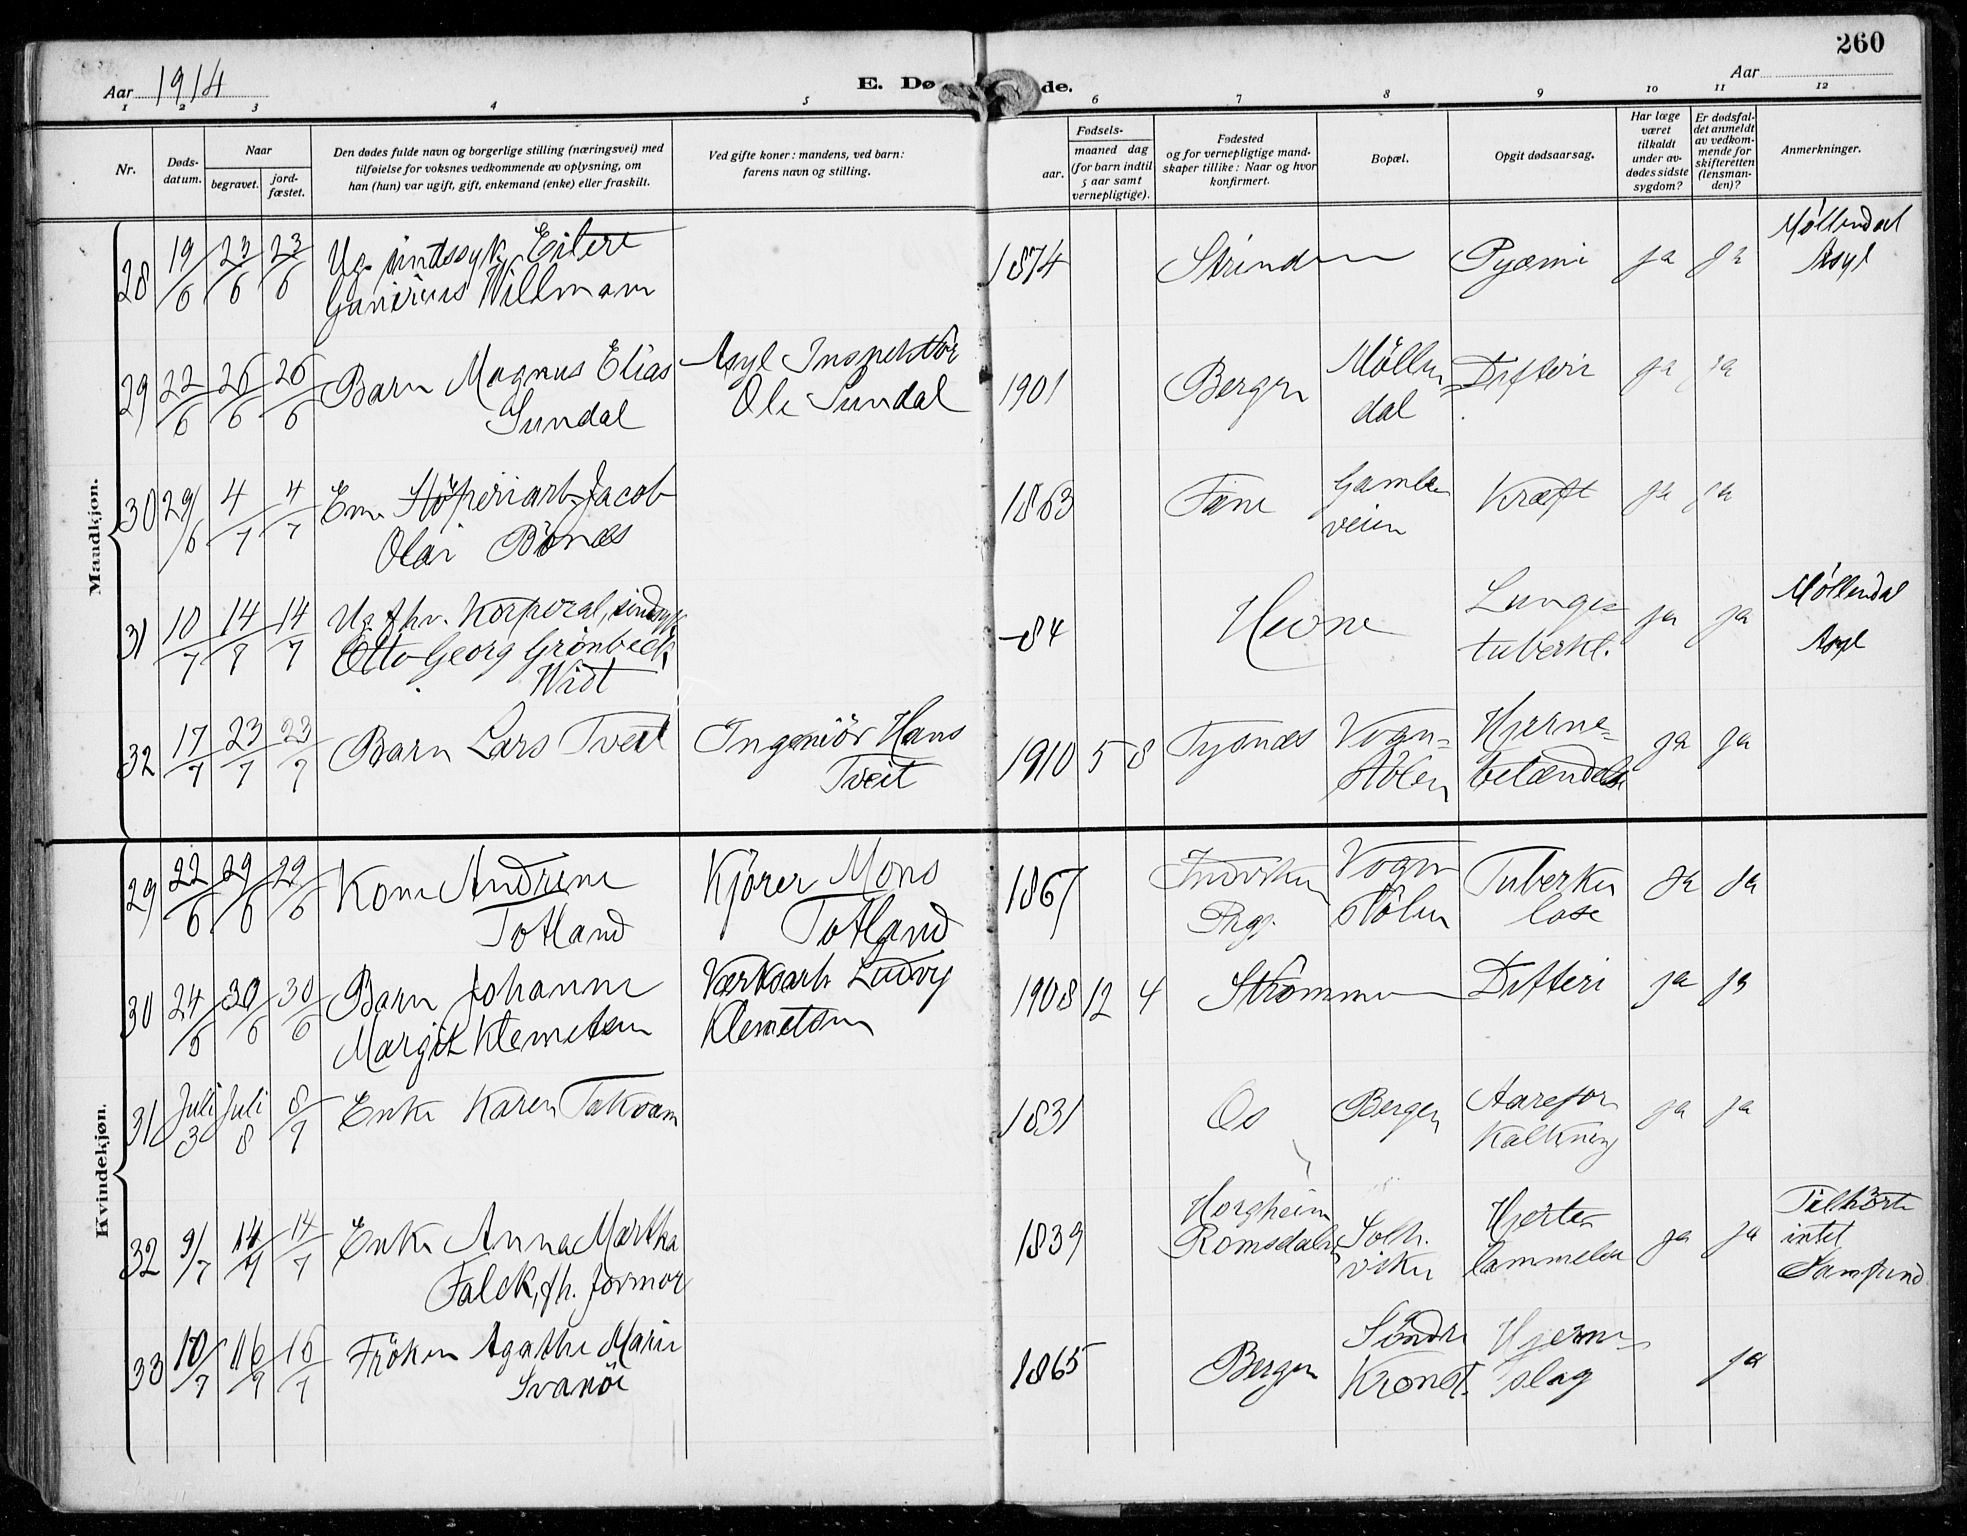 260
Aar 1914
E. Dø de.
Aar
1 2 3 4 5 6 7 8 9 10 11 12
Nr.
Døds-
datum.
Naar
begravet.
jord-
fæstet.
Den dødes fulde navn og borgerlige stilling (næringsvei) med
tilføielse for voksnes vedkommende av oplysning, om
han (hun) var ugift, gift, enkemand (enke) eller fraskilt.
Ved gifte koner: mandens, ved barn:
farens navn og stilling.
Fødsels-
aar.
maaned dag
(for barn indtil
5 aar samt
vernepligtige).
Fødested
og for vernepligtige mand-
skaper tillike: Naar og hvor
konfirmert.
Bopæl.
Opgit dødsaarsag.
Har læge
været
tilkaldt
under av-
dødes sidste
sygdom?
Er dødsfal-
det anmeldt
av vedkom-
mende for
skifteretten
(lensman-
den)?
Anmerkninger.
Maudkjøn.
28 19/6 23/6 23/6 Ug. sindssyk Eilert 1874 Strinden Pyæmi ja ja Møllendal
Willmann Asyl
29 22/6 26/6 26/6 Barn Magnus Elias Asyl Inspektör 1901 Bergen Möllen Difteri ja ja
Sundal Ole Sundal dal
30 29/6 4/7 4/7 Em. Stöperiarb. Jacob 1863 Fane Gamle Kræft ja ja
Olai Bönes veien
31 10/7 14/7 14/7 Ug. fhv. Korporal, sindssyk -84 Hevne Lunge- ja ja Møllendal
Otto Georg Grönbeck tuberkl. Asyl
Widt
32 17/7 23/7 23/7 Barn Lars Tveit Ingeniör Hans 1910 5 8 Tysnes Vogn- Hjerne- ja ja
Tveit stölen betændelse
Kvindekjøn.
29 22/6 29/6 29/6 Kone Andrine Kjörer Mons 1867 Indviken Vogn Tuberku ja ja
Totland Totland Prgj. stölen lose
30 24/6 30/6 30/6 Barn Johanne Værksarb. Ludvg 1908 12 4 Strömmen Difteri ja ja
Margit Klemetsen Klemetsen
31 Juli 3 Juli 8 8/7 Enke Karen Takvam 1831 Os Bergen Aarefor ja ja
kalkning
32 9/7 14/7 14/7 Enke Anna Martha 1839 Horgheim Solh. Hjerte ja ja Tilhörte
Falck, fh. Jormor Romsdalen viken lammelse intet
Samfund
33 10/7 16/7 16/7 Fröken Agathe Marie 1865 Bergen Söndre Hjerne ja
Svanöe Kronst. slag